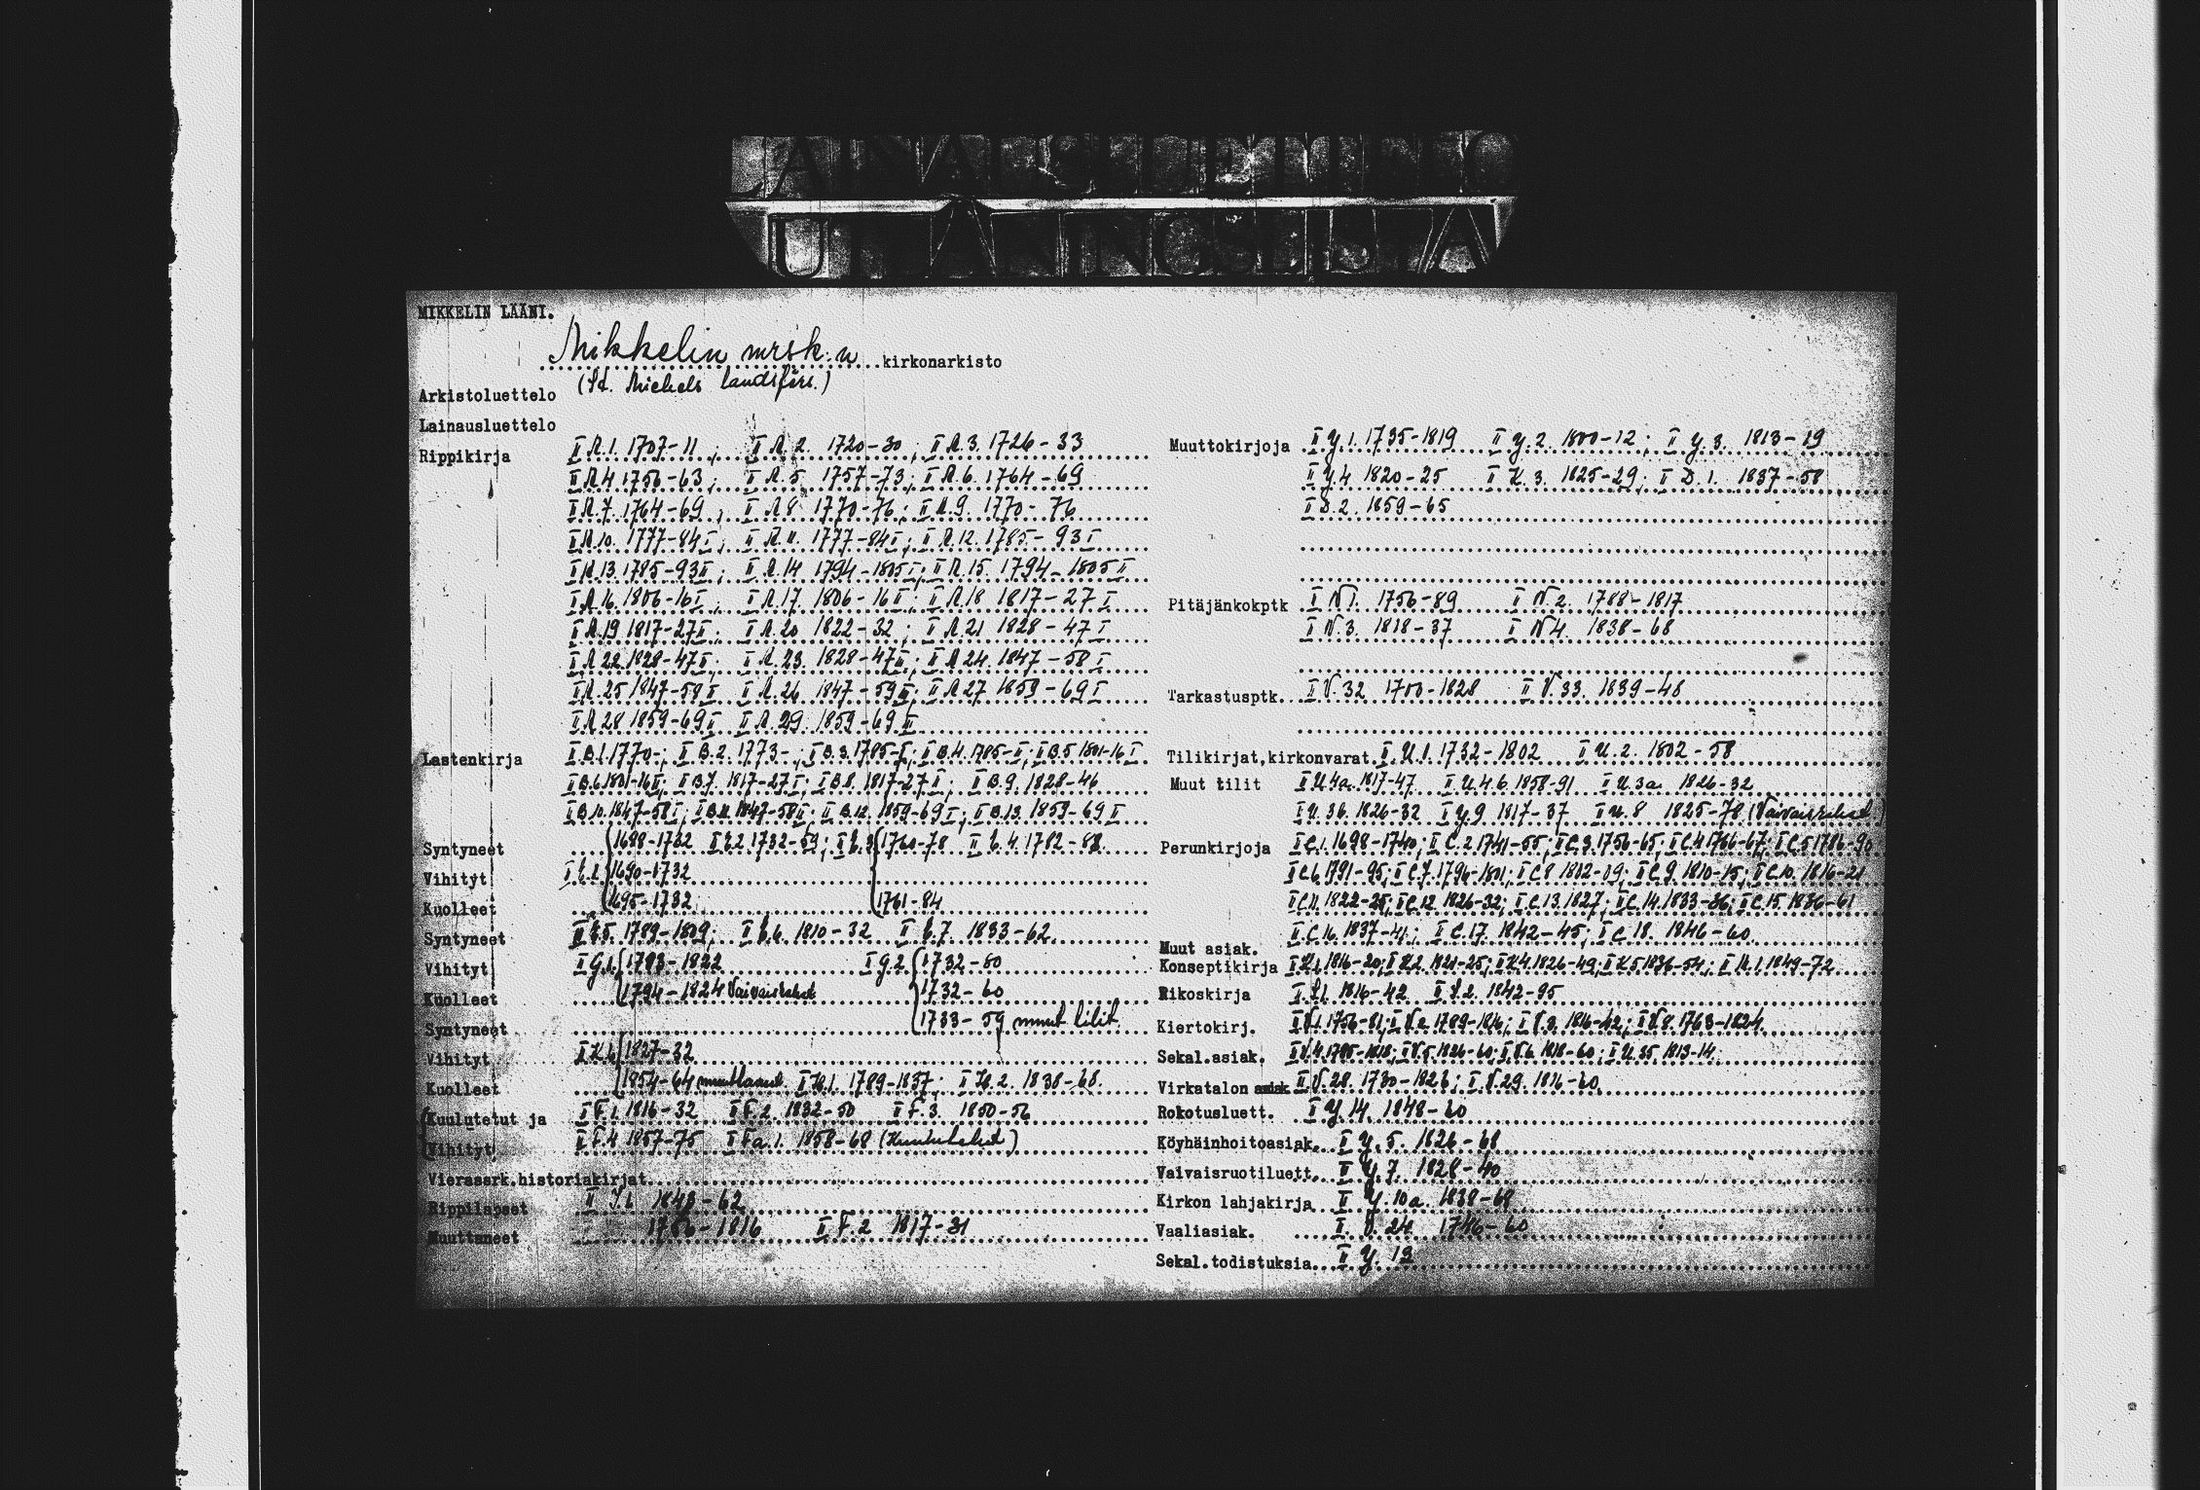 LAINAUSLUETTELO
UTLÅNINGSLISTA
MIKKELIN LÄÄNI.
Mikkelin mrsk:n kirkonarkisto
(St. Michels landsförs.)
Arkistoluettelo
Lainausluettelo
Rippikirja II A.1. 1707-11; II A.2. 1720-30; II A.3. 1726-33
II A.4 1756-63; II A.5 1757-73; II A.6. 1764-69
II A.7. 1764-69; II A8 1770-76; II A.9. 1770-76
II A.10. 1777-84 I; II A.11. 1777-84 II; II A.12. 1785-93 I
II A.13. 1785-93 II; II A.14 1794-1805 I; II A.15. 1794-1805 II
II A.16. 1806-16 I; II A.17. 1806-16 II; II A.18 1817-27 I
II A.19 1817-27 II; II A.20 1822-32; II A.21 1828-47 I
II A.22 1828-47 II; II A.23. 1828-47 III; II A.24. 1847-58 I
II A.25 1847-59 II II A.26 1847-59 III; II A.27. 1859-69 I
II A.28 1859-69 II II A.29. 1859-69 III
Lastenkirja II B.1. 1770-; II B.2. 1773-; II B.3. 1785- I; II B.4. 1785- II; II B.5 1801-16 I
II B.6. 1801-16 II; II B.7. 1817-27 I; II B.8. 1817-27 II; II B.9. 1828-46
II B.10. 1847-58 I; II B.11. 1847-58 II; II B.12. 1859-69 I; II B.13. 1859-69 II
Syntyneet 1698-1732 1732-59; 1760-78 1782-88
Vihityt 1690-1732
Kuolleet 1695-1732 1761-84
Syntyneet 1789-1809; 1810-32 1833-62
Vihityt II G.1. 1793-1822 II G.2. 1732-80
Kuolleet 1794-1824 Vaivaisrahat 1732-60
Syntyneet 1733-59 muut tilit
Vihityt II K.6 1827-32
Kuolleet 1854-64 muuttaneet II H.1. 1789-1837; II H.2. 1838-68.
(Kuulutetut ja II F.1. 1816-32 II F.2. 1832-50 II F.3. 1850-56
(Vihityt II F.4. 1857-75 II Fa.1. 1858-68
Vierasserk.historiakirjat
Rippilapset 1843-62
Muuttaneet 1786-1816 II F.2 1817-31
Muuttokirjoja II Y.1. 1735-1819 II Y.2. 1800-12; II Y.3. 1813-19
II Y.4 1820-25 II K.3. 1825-29; II D.1. 1837-58
II D.2. 1859-65
Pitäjänkokptk II N1. 1756-89 II N.2. 1788-1817
II N.3. 1818-37 II N4. 1838-68
Tarkastusptk. II V.32 1700-1828 II V.33. 1839-48
Tilikirjat,kirkonvarat II U.1. 1732-1802 II U.2. 1802-58
Muut tilit II U.4a. 1817-47 II U.4.b. 1858-91 II U.3a. 1826-32
II U.3b. 1826-32 II Y.9. 1817-37 II U.8 1825-78 (Vaivaisrahat)
Perunkirjoja II C.1. 1698-1740; II C.2. 1741-55; II C.3. 1756-65; II C.4 1766-67; II C.5 1786-90
II C.6. 1791-95; II C.7. 1796-1801; II C.8 1802-09; II C.9. 1810-15; II C.10. 1816-21
II C.11. 1822-25; II C.12. 1826-32; II C.13. 1827; II C.14. 1833-36; II C.15. 1836-61
II C.16. 1837-41; II C.17. 1842-45; II C.18. 1846-60
Muut asiak.
Konseptikirja II K.1. 1816-20; II K.2. 1821-25; II K.4. 1826-49; II K.5 1836-54; 1849-72
Rikoskirja 1816-42 1842-95
Kiertokirj. II V.1. 1756-81; II V.2. 1789-1816; II V.3. 1816-42; II V.8. 1763-1824
Sekal.asiak. II V.4. 1785-1818; II V.5. 1826-60; II V.6. 1818-60; II U.35. 1813-14
Virkatalon asiak II V.28. 1730-1826; II V.29. 1816-60
Rokotusluett. II Y.14. 1848-60
Köyhäinhoitoasiak. II Y.5. 1826-68
Vaivaisruotiluett. II Y.7. 1828-40
Kirkon lahjakirja II Y.10a. 1838-68
Vaaliasiak. II V.24 1746-60
Sekal.todistuksia II Y.13